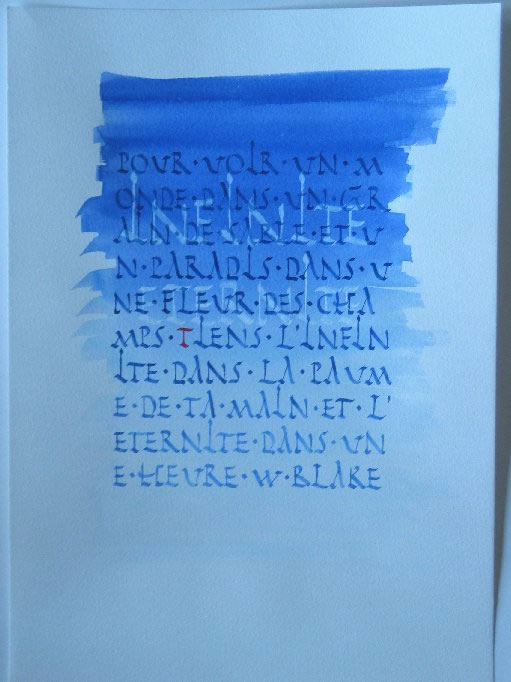 POUR·VOIR·UN·M
ONDE·DANS·UN·GR
AIN·DE·SABLE·ET·U
N·PARADIS·DANS·U
NE·FLEUR·DES·CHA
MPS·TIENS·L'INFIN
ITE·DANS·LA·PAUM
E·DE·TA·MAIN·ET·L'
ETERNITE·DANS·UN
E·HEURE·W·BLAKE
INFINITE
ETERNITE